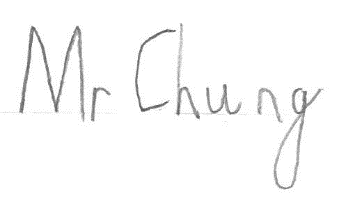 Mr Chung